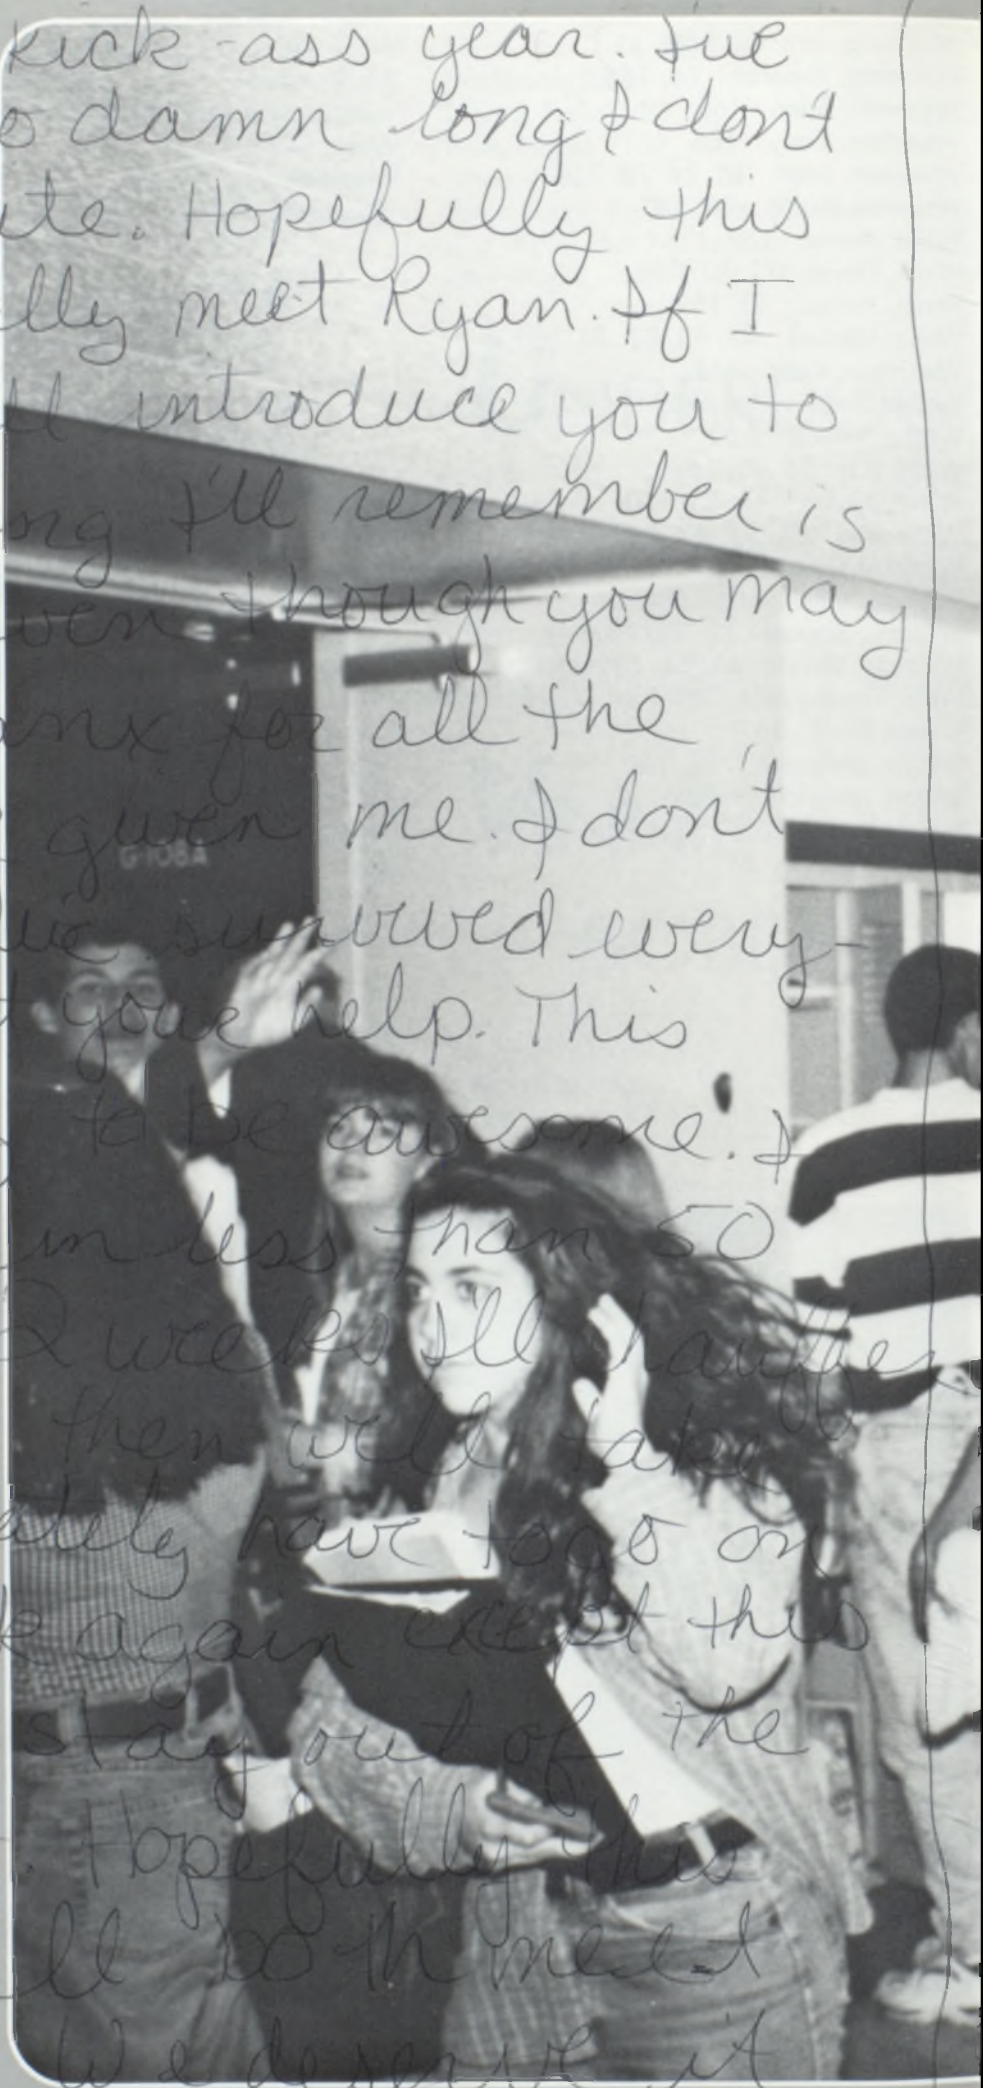 kick-ass year. I've
o damn long I don't
ite. Hopefully this
lly meet Ryan. If I
ll introduce you to
ong I'll remember is
ven though you may
anx for all the
given me. I don't
survived every-
your help. This
to be awesome. I
in less than 50
2 weeks I'll
then will take
ately have to go on
k again except this
stay out of the
. Hopefully this
ll both meet
We deserve it
G-108A